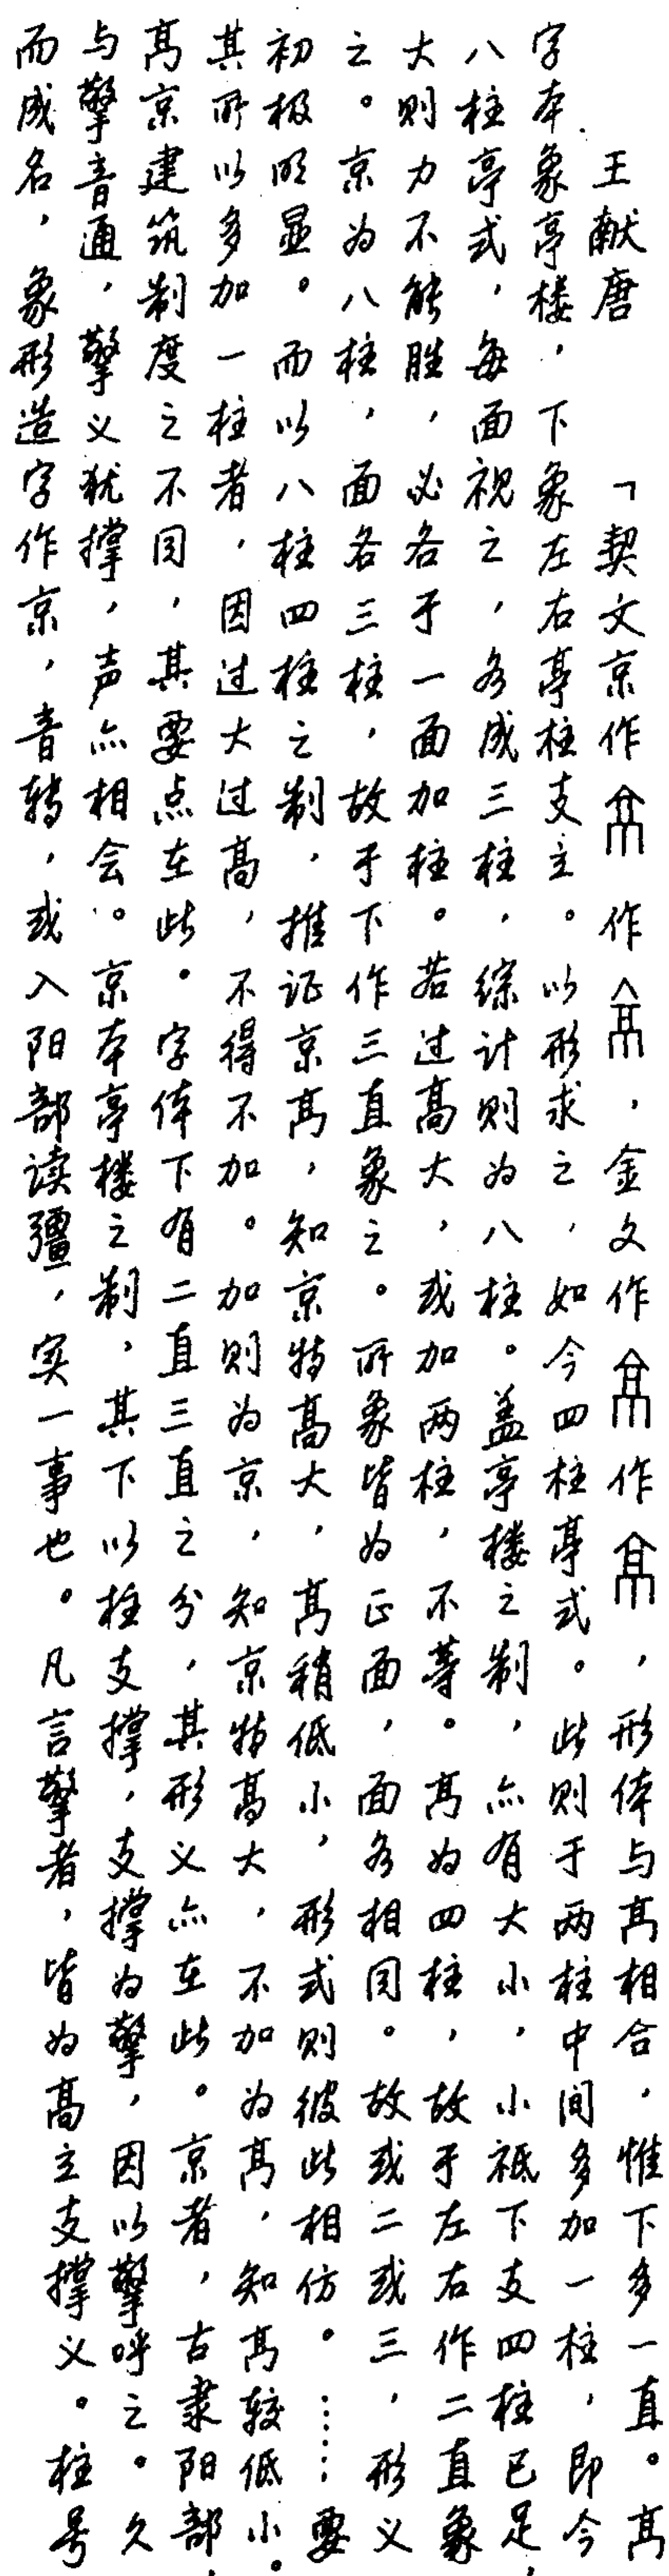 王献唐 「契文京作 作 ，金文作 作 ，形体与高相合，惟下多一直。高
字本象亭楼，下象左右亭柱支立。以形求之，如今四柱亭式。此则于两柱中间多加一柱，即今
八柱亭式，每面视之，各成三柱，综计则为八柱。盖亭楼之制，亦有大小，小祗下支四柱已足，
大则力不能胜，必各于一面加柱。若过高大，或加两柱，不等。高为四柱，故于左右作二直象
之。京为八柱，面各三柱，故于下作三直象之。所象皆为正面，面各相同。故或二或三，形义
初极明显。而以八柱四柱之制，推证京高，知京特高大，高稍低小，形式则彼此相仿。……要
其所以多加一柱者，因过大过高，不得不加。加则为京，知京特高大，不加为高，知高较低小。
高京建筑制度之不同，其要点在此。字体下有二直三直之分，其形义亦在此。京者，古隶阳部，
与擎音通，擎义犹撑，声亦相会。京本亭楼之制，其下以柱支撑，支撑为擎，因以擎呼之。久
而成名，象形造字作京，音转，或入阳部读彊，实一事也。凡言擎者，皆为高立支撑义。柱号